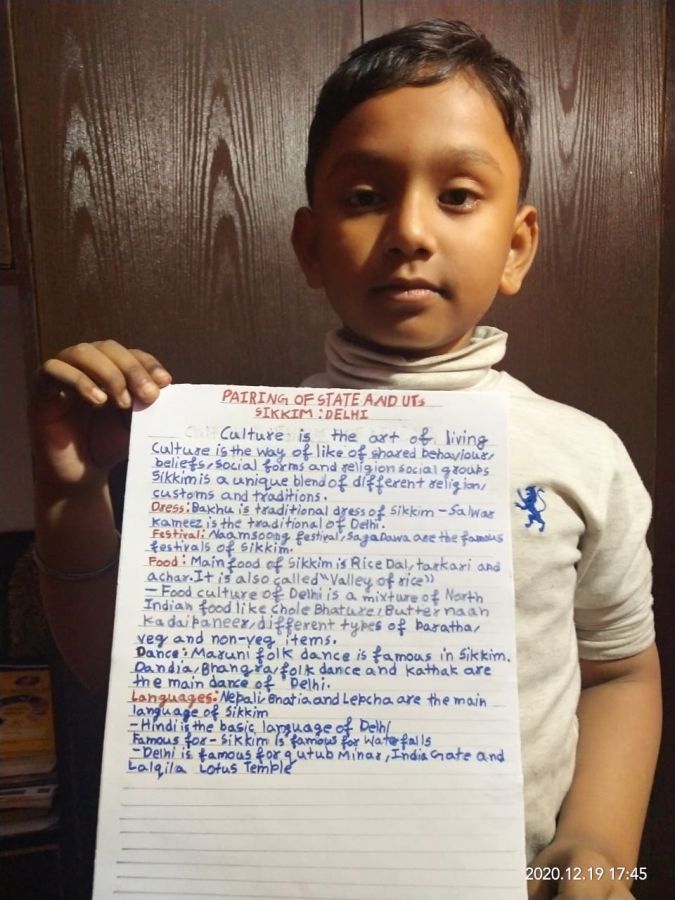 PAIRING OF STATE AND UTs
SIKKIM : DELHI
Culture is the art of living
Culture is the way of like of shared behaviour,
beliefs, social forms and religion social groups
Sikkim is a unique blend of different religion,
customs and traditions.
Dress: Bakhu is traditional dress of Sikkim - Salwar
kameez is the traditional of Delhi.
Festival: Naamsoong festival, Saga Dawa are the famous
festivals of Sikkim.
Food: Main food of Sikkim is Rice Dal, tarkari and
achar. It is also called "Valley of rice"
- Food culture of Delhi is a mixture of North
Indian food like chole Bhature, Butter naan
kadai paneer, different types of paratha,
veg and non-veg items.
Dance: Maruni folk dance is famous in Sikkim.
Dandia, Bhangra, folk dance and kathak are
the main dance of Delhi.
Languages: Nepali Bhatia and Lepcha are the main
language of Sikkim
- Hindi is the basic language of Delhi
Famous for - Sikkim is famous for Waterfalls
- Delhi is famous for qutub Minar, India Gate and
Lalqila Lotus Temple
2020.12.19 17:45